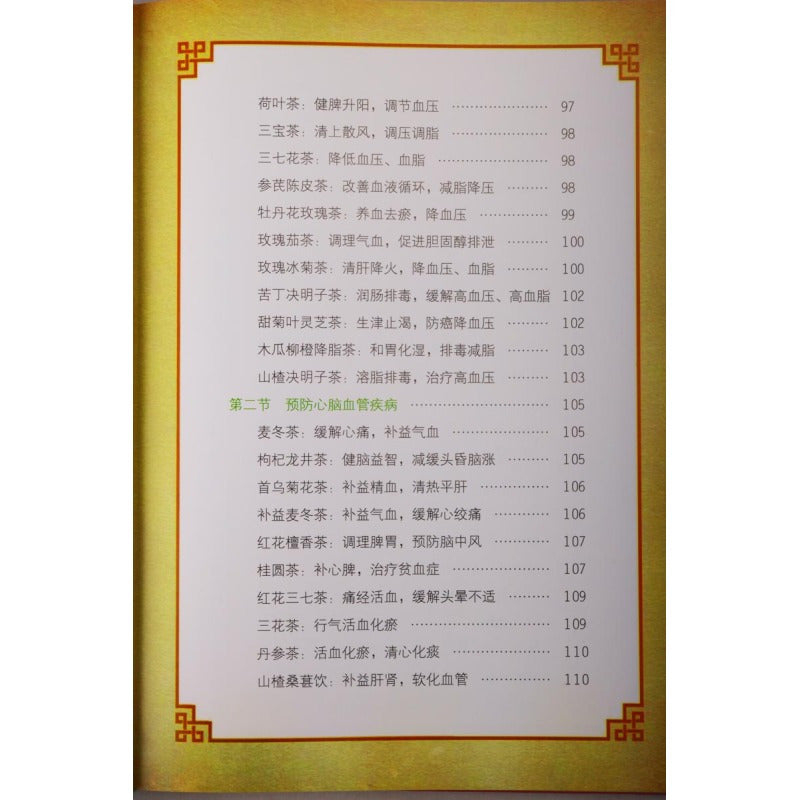 荷叶茶：健脾升阳，调节血压 ………………… 97
三宝茶：清上散风，调压调脂 ………………… 98
三七花茶：降低血压、血脂 …………………… 98
参芪陈皮茶：改善血液循环，减脂降压 ……… 98
牡丹花玫瑰茶：养血去瘀，降血压 …………… 99
玫瑰茄茶：调理气血，促进胆固醇排泄 ……… 100
玫瑰冰菊茶：清肝降火，降血压、血脂 ……… 100
苦丁决明子茶：润肠排毒，缓解高血压、高血脂 102
甜菊叶灵芝茶：生津止渴，防癌降血压 ……… 102
木瓜柳橙降脂茶：和胃化湿，排毒减脂 ……… 103
山楂决明子茶：溶脂排毒，治疗高血压 ……… 103
第二节 预防心脑血管疾病 …………………… 105
麦冬茶：缓解心痛，补益气血 ………………… 105
枸杞龙井茶：健脑益智，减缓头昏脑涨 ……… 105
首乌菊花茶：补益精血，清热平肝 …………… 106
补益麦冬茶：补益气血，缓解心绞痛 ………… 106
红花檀香茶：调理脾胃，预防脑中风 ………… 107
桂圆茶：补心脾，治疗贫血症 ………………… 107
红花三七茶：痛经活血，缓解头晕不适 ……… 109
三花茶：行气活血化瘀 ………………………… 109
丹参茶：活血化瘀，清心化痰 ………………… 110
山楂桑葚饮：补益肝肾，软化血管 …………… 110